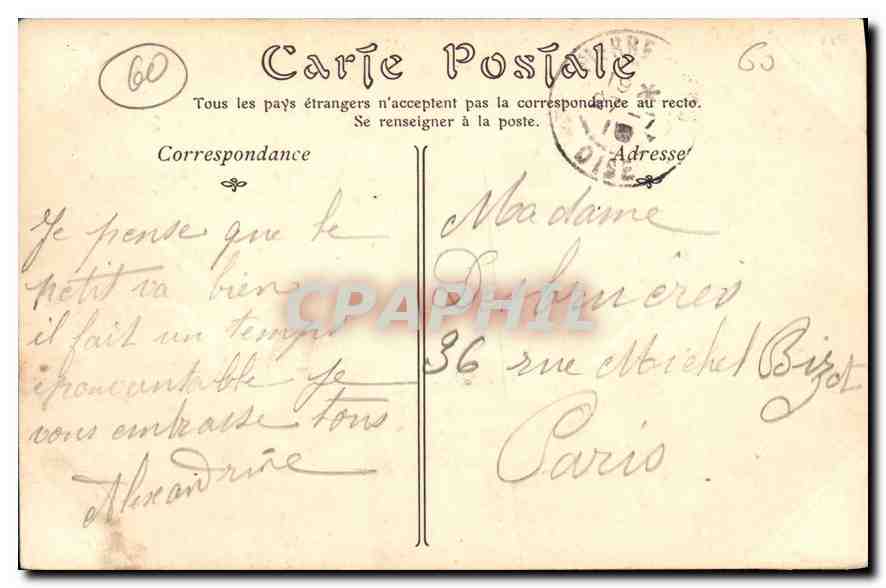 60
Carte Postale
60
Tous les pays étrangers n'acceptent pas la correspondance au recto.
Se renseigner à la poste.
PIERRE
OISE
Correspondance
Adresse
Je pense que le
petit va bien
il fait un temps
épouvantable je
vous embrasse tous
Alexandrine
Madame
36 rue Michel Bizot
Paris
CPAPHIL